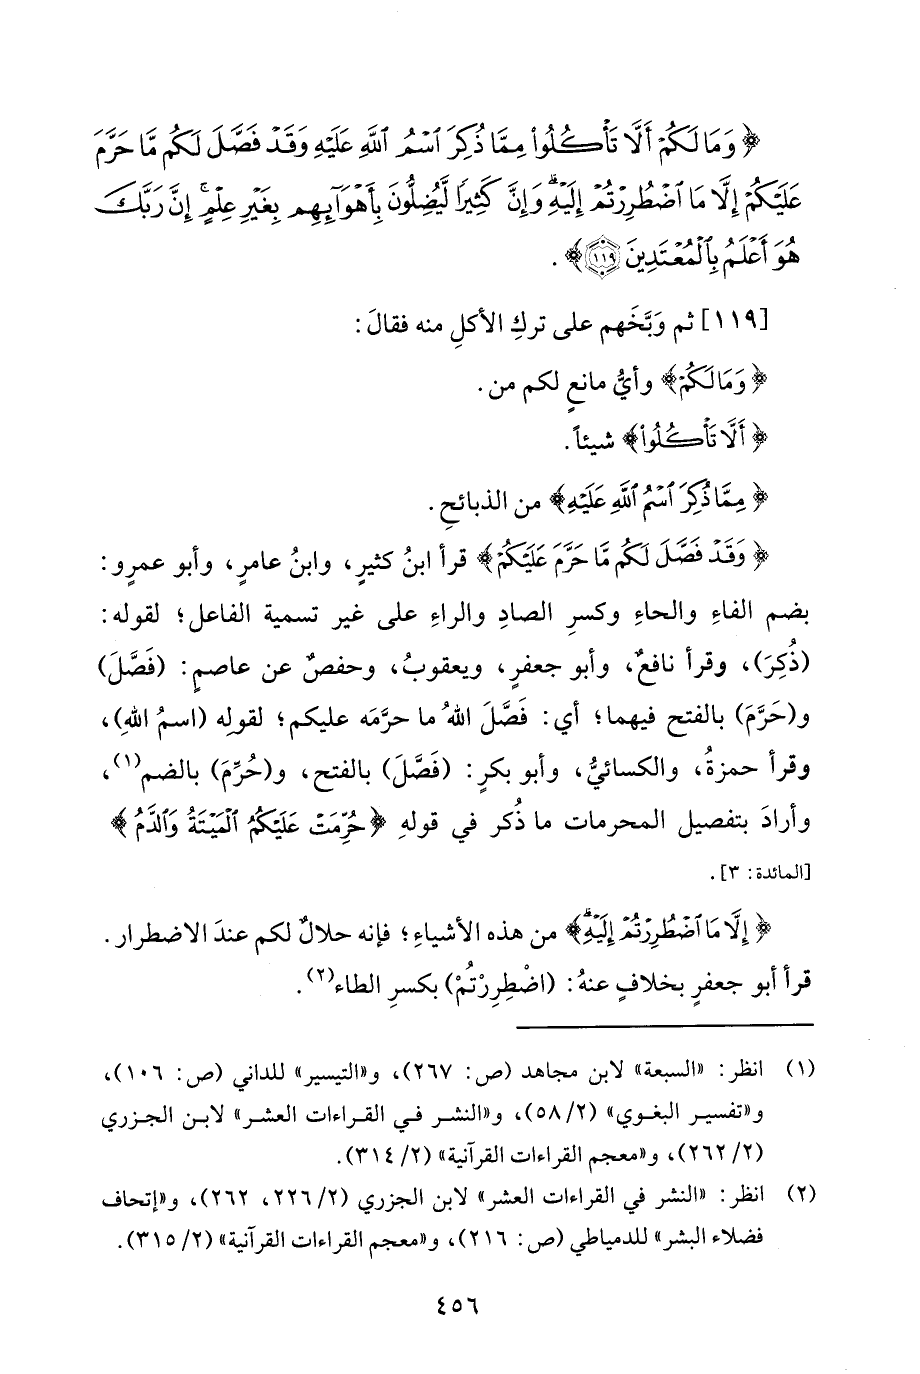 ﴿وَمَا لَكُمْ أَلَّا تَأْكُلُوا۟ مِمَّا ذُكِرَ ٱسْمُ ٱللَّهِ عَلَيْهِ وَقَدْ فَصَّلَ لَكُم مَّا حَرَّمَ
عَلَيْكُمْ إِلَّا مَا ٱضْطُرِرْتُمْ إِلَيْهِ ۗ وَإِنَّ كَثِيرًا لَّيُضِلُّونَ بِأَهْوَآئِهِم بِغَيْرِ عِلْمٍ ۚ إِنَّ رَبَّكَ
هُوَ أَعْلَمُ بِٱلْمُعْتَدِينَ ١١٩﴾ .
[١١٩] ثم وَبَّخَهم على تركِ الأكلِ منه فقالَ:
﴿وَمَا لَكُمْ﴾ وأيُّ مانعٍ لكم من.
﴿أَلَّا تَأْكُلُوا۟﴾ شيئاً.
﴿مِمَّا ذُكِرَ ٱسْمُ ٱللَّهِ عَلَيْهِ﴾ من الذبائحِ.
﴿وَقَدْ فَصَّلَ لَكُم مَّا حَرَّمَ عَلَيْكُمْ﴾ قرأ ابنُ كثيرٍ، وابنُ عامرٍ، وأبو عمرٍو:
بضم الفاءِ والحاءِ وكسرِ الصادِ والراءِ على غير تسمية الفاعل؛ لقوله:
(ذُكِرَ)، وقرأ نافعٌ، وأبو جعفرٍ، ويعقوبُ، وحفصٌ عن عاصمٍ: (فَصَّلَ)
و(حَرَّمَ) بالفتح فيهما؛ أي: فَصَّلَ اللهُ ما حرَّمَه عليكم؛ لقولِه (اسمُ اللهِ)،
وقرأ حمزةُ، والكسائيُّ، وأبو بكرٍ: (فَصَّلَ) بالفتح، و(حُرِّمَ) بالضم(١)،
وأرادَ بتفصيل المحرمات ما ذُكر في قولهِ ﴿حُرِّمَتْ عَلَيْكُمُ ٱلْمَيْتَةُ وَٱلدَّمُ﴾
[المائدة: ٣].
﴿إِلَّا مَا ٱضْطُرِرْتُمْ إِلَيْهِ ۗ﴾ من هذه الأشياءِ؛ فإنه حلالٌ لكم عندَ الاضطرار.
قرأ أبو جعفرٍ بخلافٍ عنهُ: (اضْطِرِرْتُمْ) بكسرِ الطاء(٢).
(١) انظر: «السبعة» لابن مجاهد (ص: ٢٦٧)، و«التيسير» للداني (ص: ١٠٦)،
و«تفسير البغوي» (٢/ ٥٨)، و«النشر في القراءات العشر» لابن الجزري
(٢/ ٢٦٢)، و«معجم القراءات القرآنية» (٢/ ٣١٤).
(٢) انظر: «النشر في القراءات العشر» لابن الجزري (٢/ ٢٢٦، ٢٦٢)، و«إتحاف
فضلاء البشر» للدمياطي (ص: ٢١٦)، و«معجم القراءات القرآنية» (٢/ ٣١٥).
٤٥٦